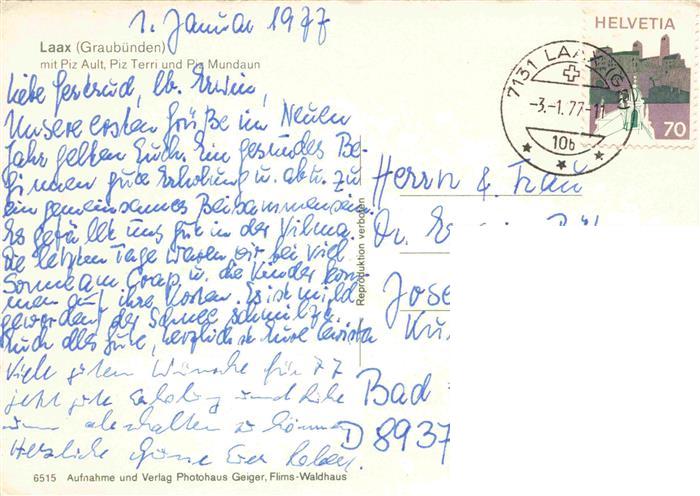 1. Januar 1977
Laax (Graubünden)
mit Piz Ault, Piz Terri und Piz Mundaun
HELVETIA
70
7131 LAAX (GR)
-3.-1.77-1
10b
Liebe Gertrud, lb. Erwin,
Unsere ersten Grüße im Neuen
Jahr gelten Euch. Ein gesundes Be-
ginnen gute Erholung u. ab u. zu
ein gemeinsames Beisammensein.
Es gefällt uns gut in der Vilma
Die letzten Tage waren wir bei viel
Sonne am Crap u. die Kinder kom-
men auf ihre Kosten. Es ist mild
geworden der Schnee schmilzt.
Euch alles Gute, herzlichst Eure
Viele guten Wünsche für 77
jetzt gute Erholung und
um abschalten zu können
Herzliche Grüße Euer
Herrn & Frau
Dr.
Jose
Ku
Bad
D 8937
Reproduktion verboten
6515 Aufnahme und Verlag Photohaus Geiger, Flims-Waldhaus